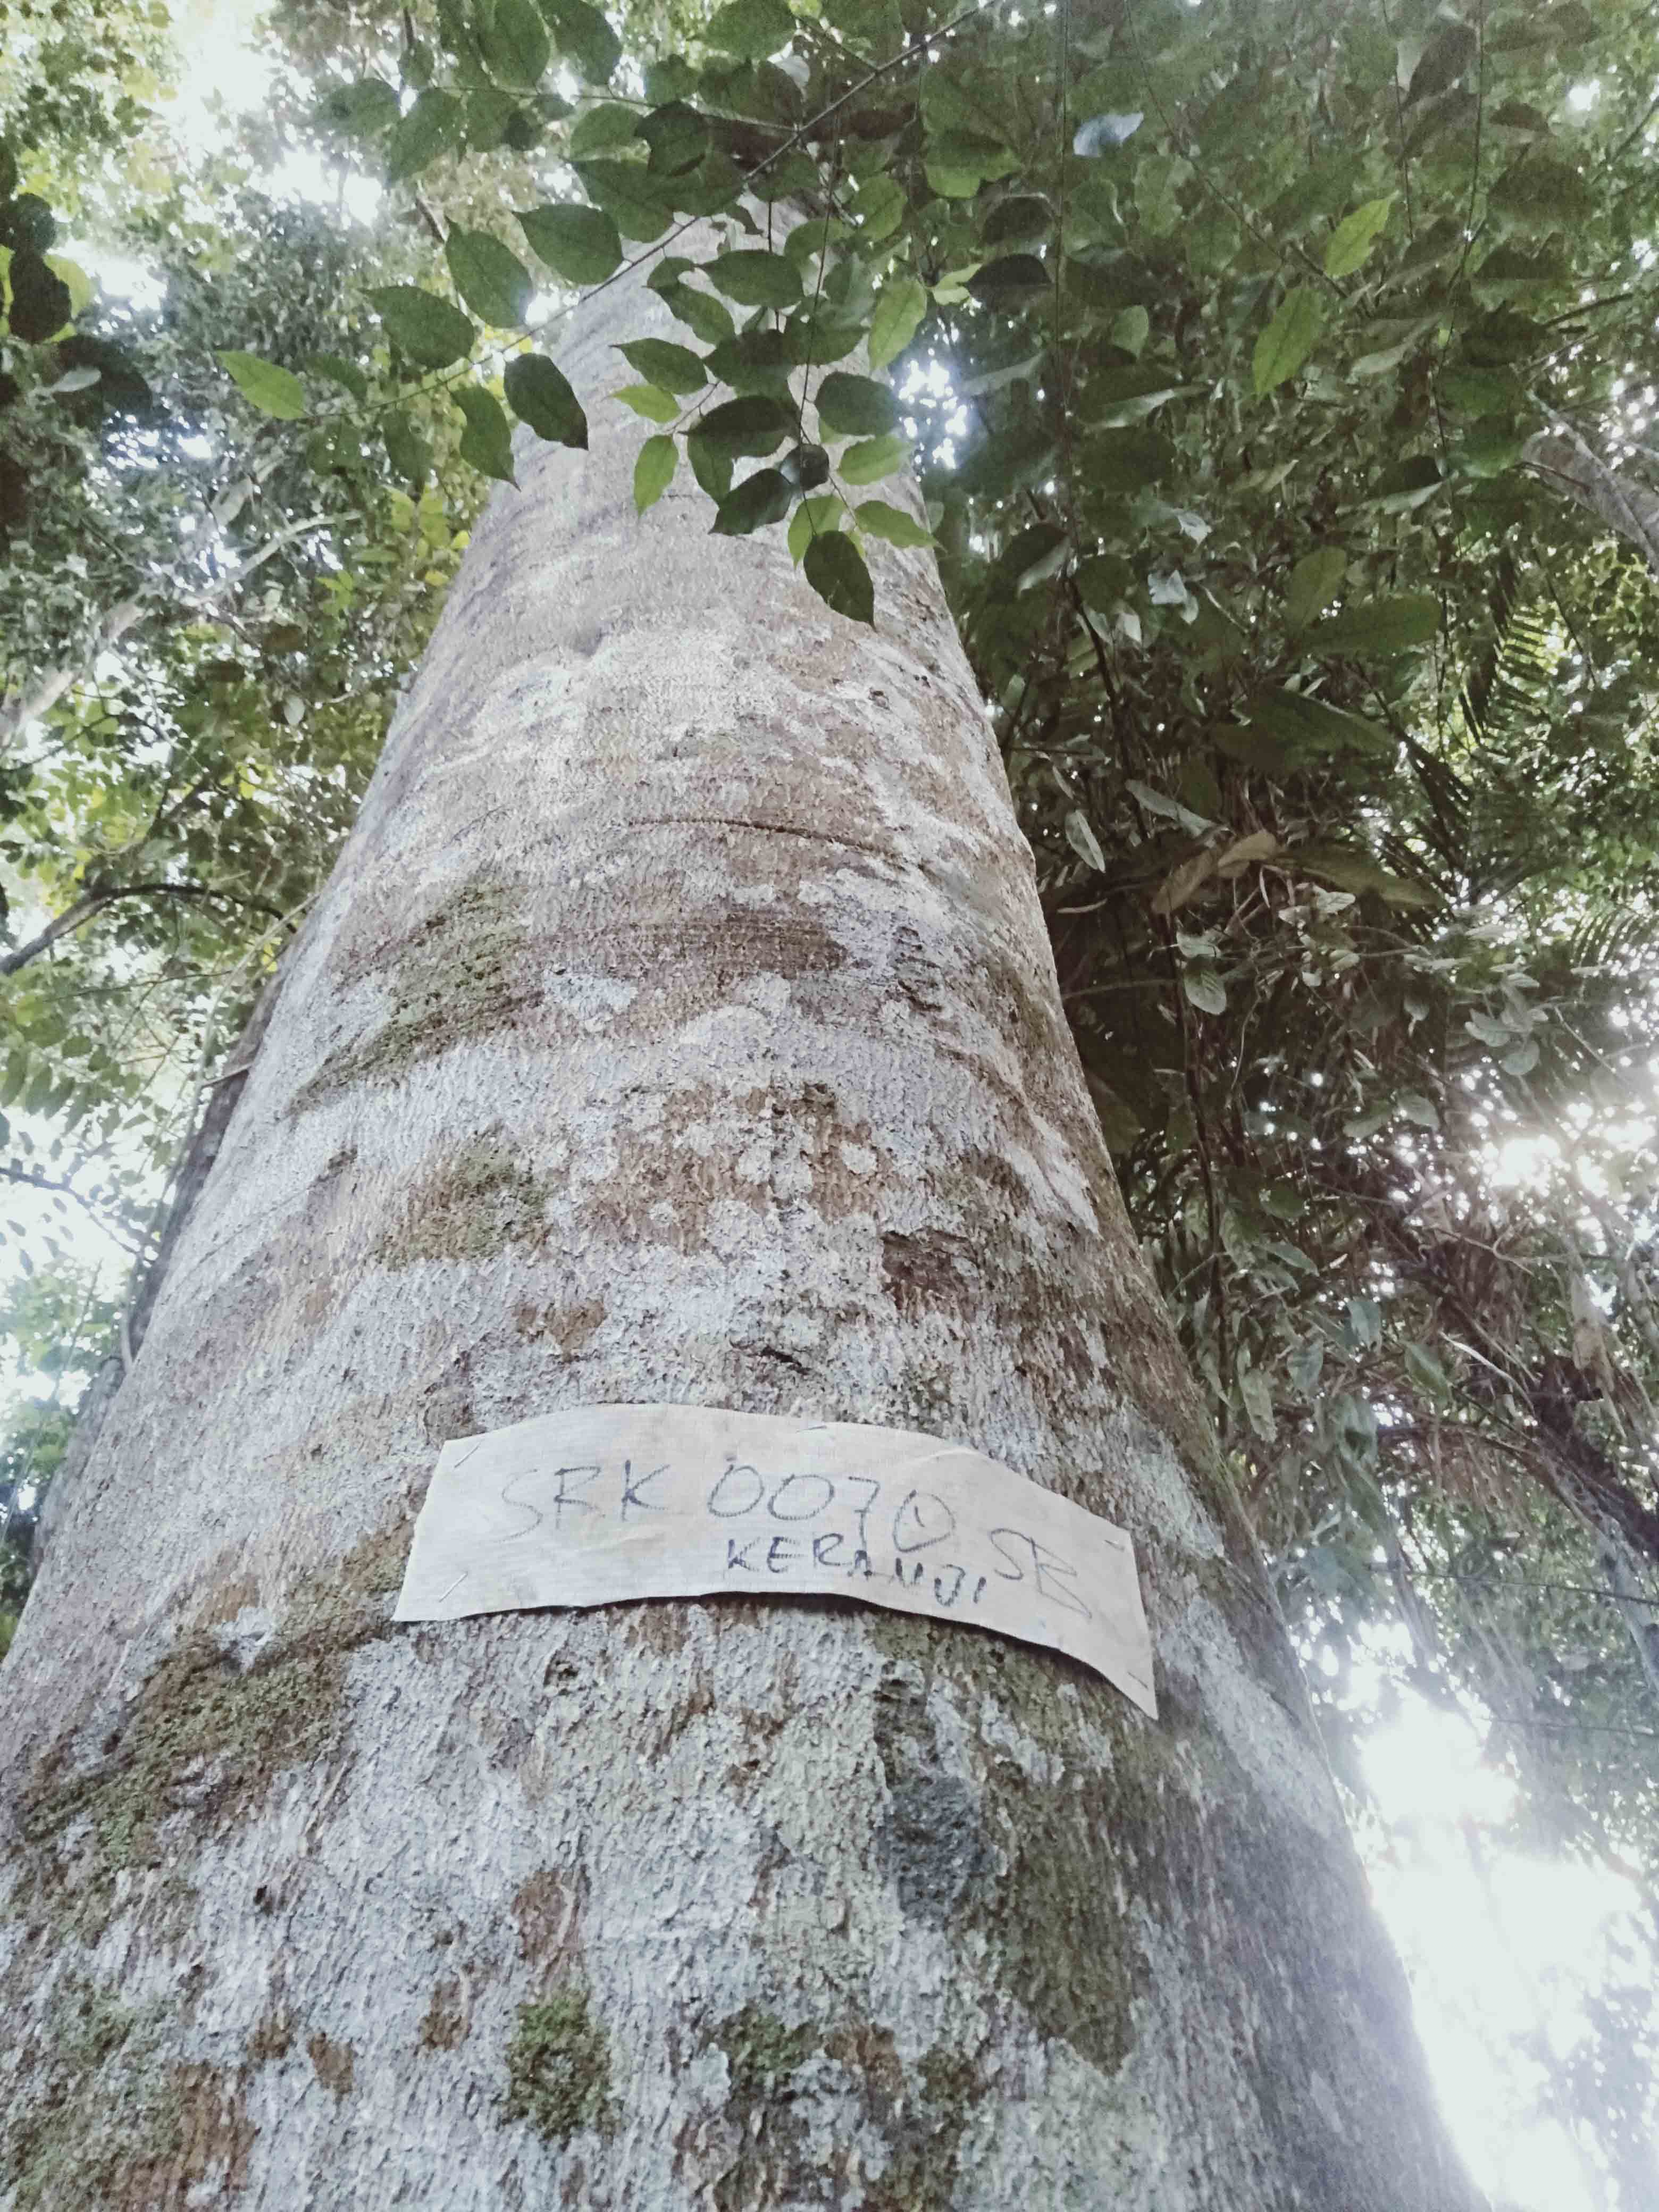 SRK 0070 SB
KERANJI